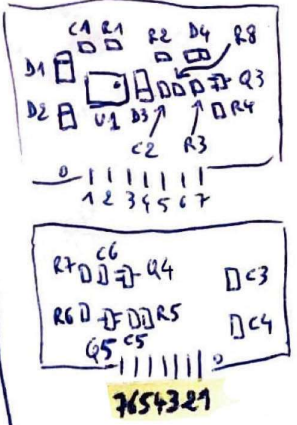 C1 R1 R2 D4 R8
D1
Q3
D2 U1 D3 R4
C2 R3
0
1 2 3 4 5 6 7
C6
R7 Q4 C3
R6 R5 C4
Q5 C5
7654321